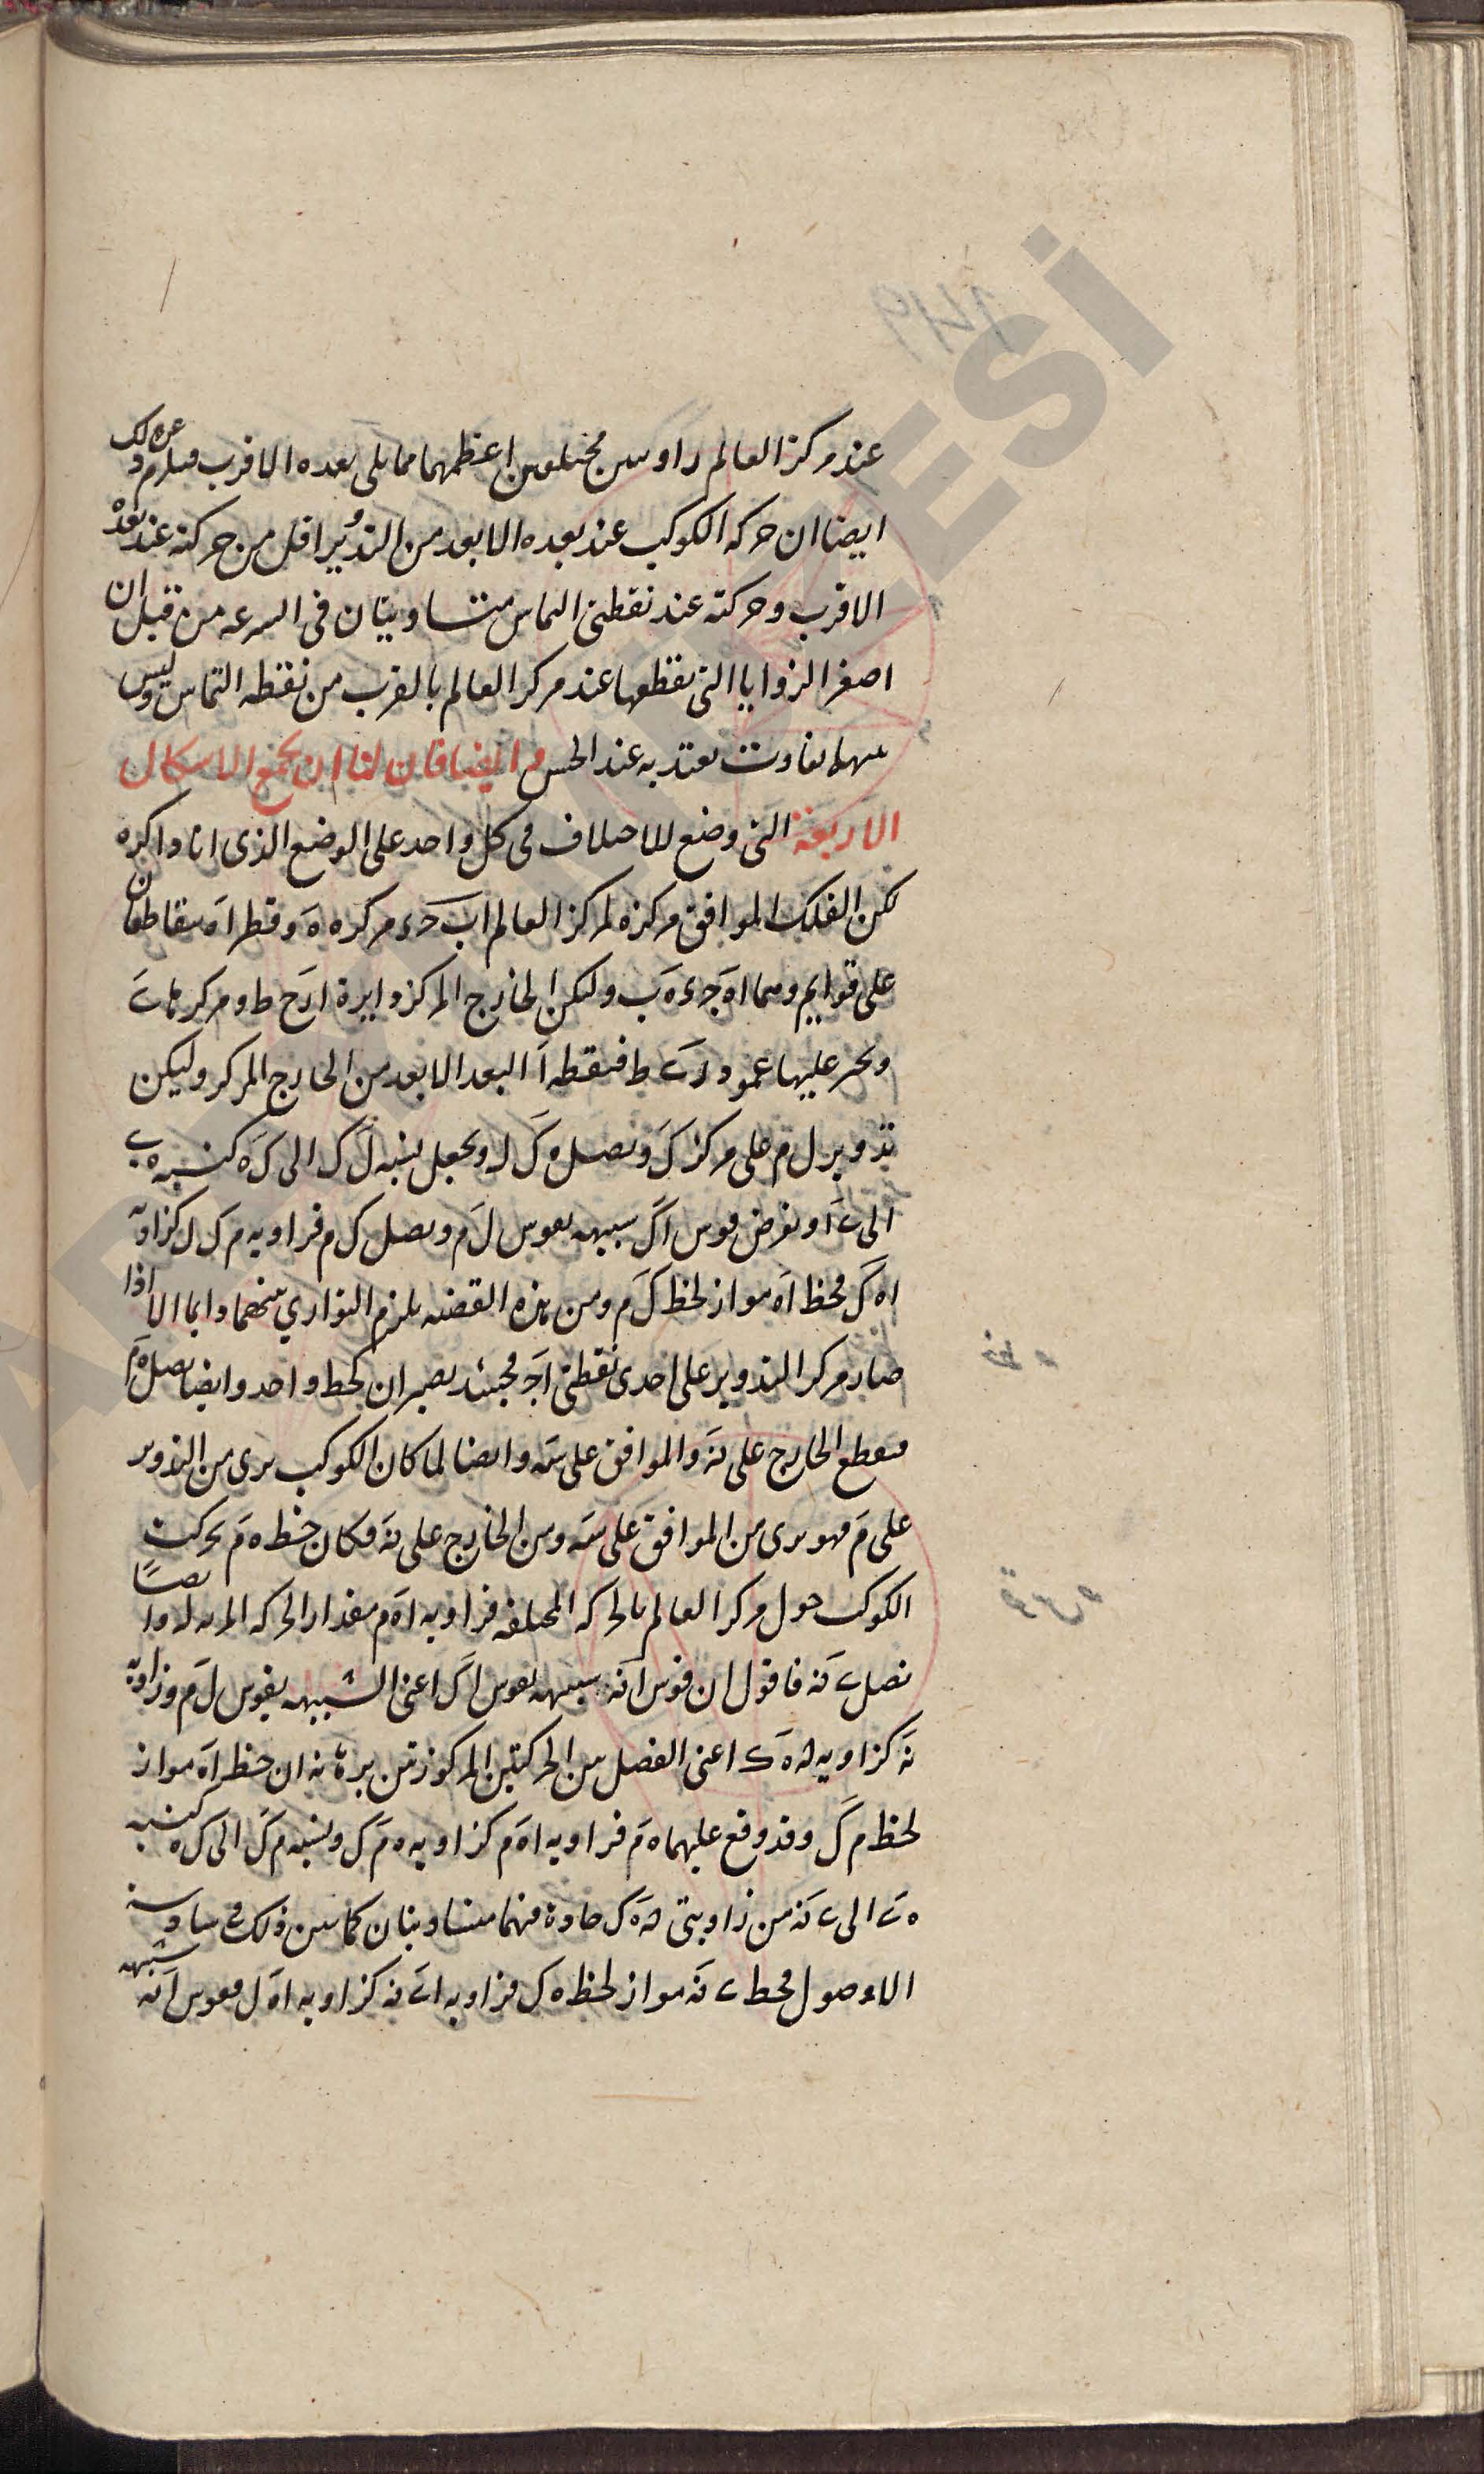 عند مركز العالم زاويتين مختلفتين اعظمهما مما يلى بعده الاقرب فيلزم من ذلك
ايضا ان حركه الكوكب عند بعده الابعد من التدوير اقل من حركته عند بعده
الاقرب وحركته عند نقطتى التماس متساويتان فى السرعه من قبل ان
اصغر الزوايا التى يقطعها عند مركز العالم بالقرب من نقطه التماس وليس
بينهما تفاوت يعتد به عند الحس وايضا فان لنا ان نجمع الاشكال
الاربعة التى وضع للاختلاف فى كل واحد على الوضع الذى انا ذاكره
لكن الفلك الموافق مركزه لمركز العالم اب حء مركزه ه وقطراه يتقاطعان
على قوايم وهما اه ج ءه ب وليكن الخارج المركز دايرة ا ح ط ومركزها
ونخرج عليها عمود ط فنقطه ا البعد الابعد من الخارج المركز وليكن
تدوير ل م على مركز ك ونصل ك ل ونجعل نسبه ل ك الى ك ه كنسبه ه
الى ا ونفرض قوس اك شبيهه بقوس ل م ونصل ك م فزاويه م ك ل كزاويه
اه ك فخط اه مواز لخط ك م ومن هذه القضيه يلزم التوازي بينهما دايما الا اذا
صار مركز التدوير على احدى نقطتى ا ج فحينئذ يصيران كخط واحد وايضا نصل ه م
فيقطع الخارج على نه والموافق على سه وايضا لما كان الكوكب يرى من التدوير
على م فهو يرى من الموافق على سه ومن الخارج على نه فكان خط ه م يحركت
الكوكب حول مركز العالم بالحركه المختلفه فزاويه اه م مقدار الحركه المرييه له وايضا
نصل نه فاقول ان قوس انه شبيهه بقوس اك اعنى الشبيهه بقوس ل م وزاويه
نه كزاويه ه ك اعنى الفضل بين الحركتين المذكورتين برهانه ان خط اه مواز
لخط م ك وقد وقع عليهما ه م فزاويه اه م كزاويه ه م ك ونسبه م ك الى ك ه كنسبه
ه الى نه من زاويتى ه ك حادة فهما متساويتان كما بين ذلك فى
الاصول فخط نه مواز لخط ه ك فزاويه ا نه كزاويه اه ل فقوس انه شبيهه